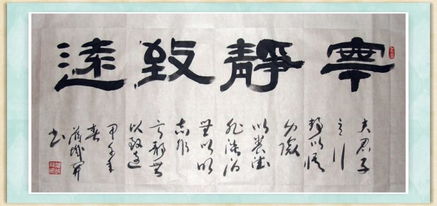 寧靜致遠
夫君子
之行
静以修
身儉
以養德
非淡泊
無以明
志非
寧静無
以致遠
甲午年
春
书